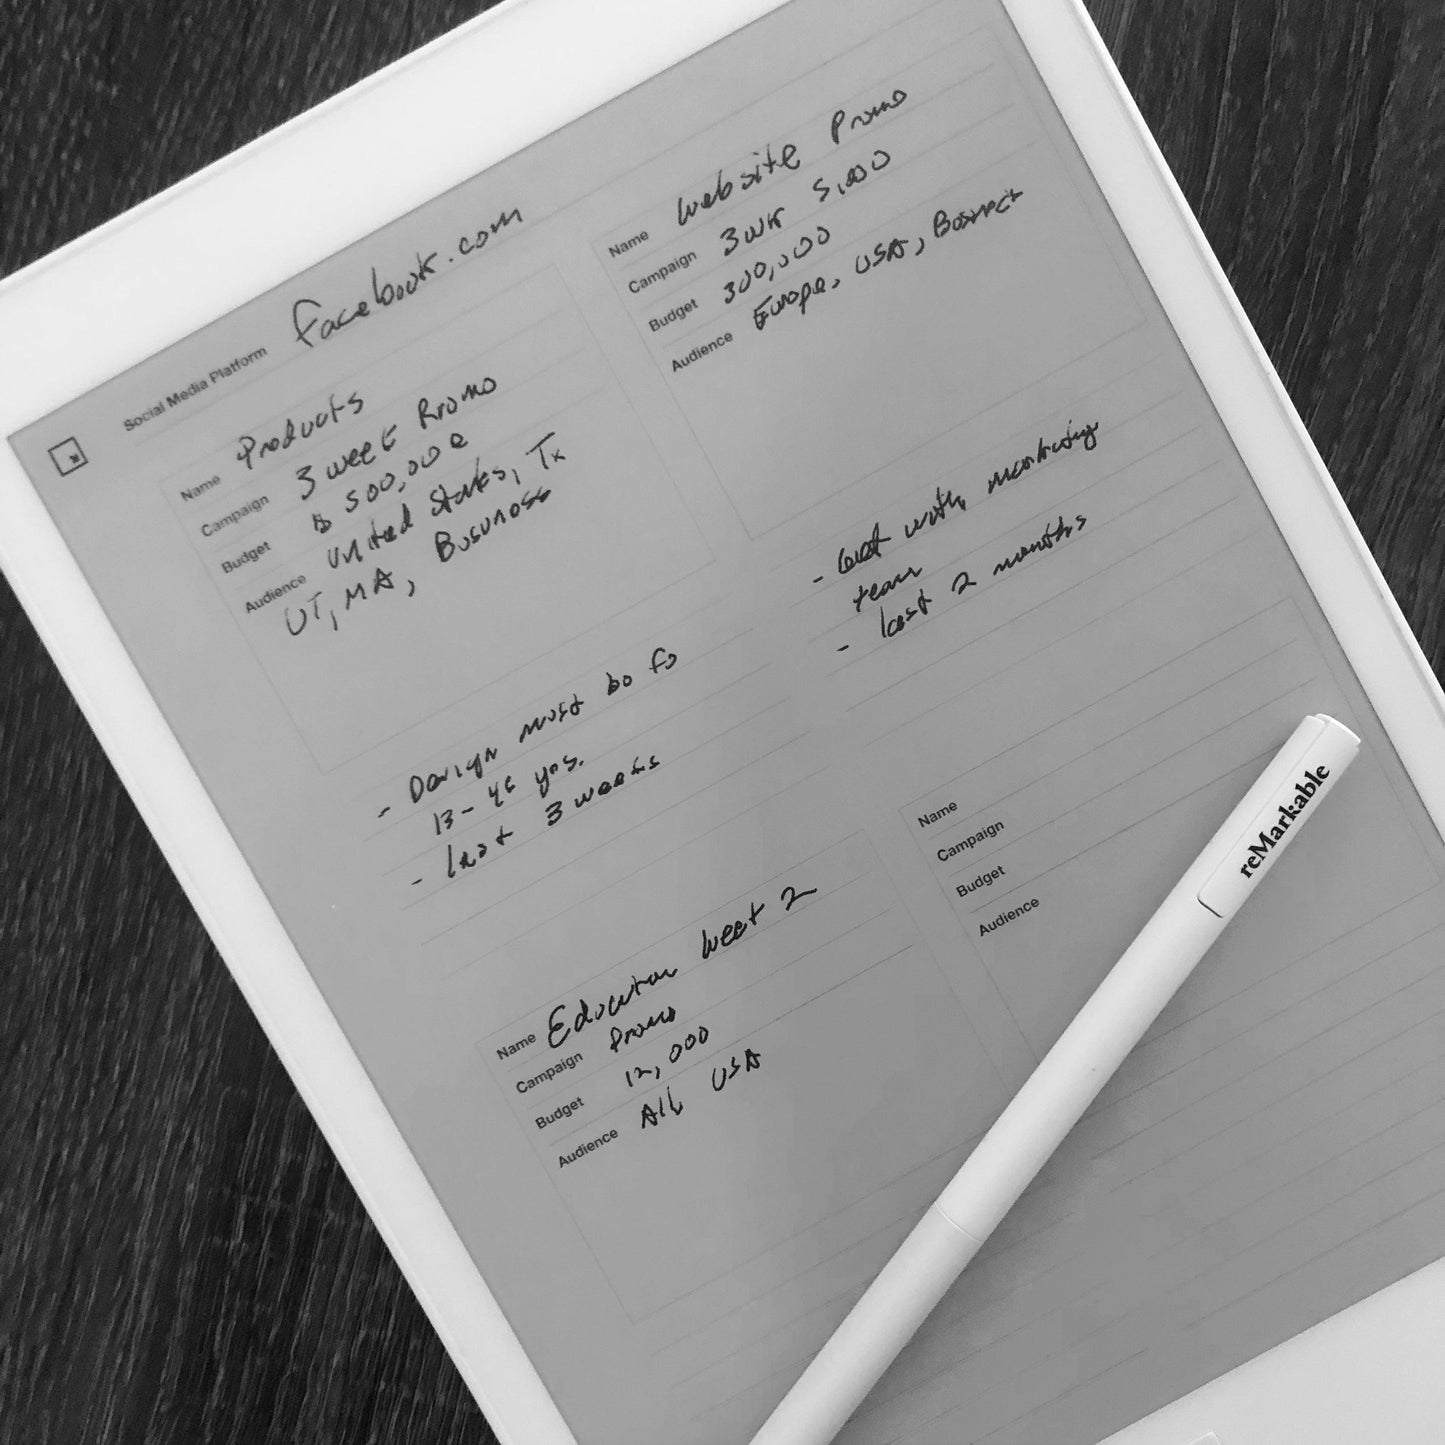 Social Media Platform Facebook.com
Name Products
Campaign 3 week Promo
Budget $ 500,000
Audience United States, Tx
UT, MA, Busuness
- Design must be fo
13-46 yrs.
- last 3 weeks
Name Website Promo
Campaign 3 wk 5,000
Budget 300,000
Audience Europe, USA,
- with marketing
team
- last 2 months
Name Education week 2
Campaign Promo
Budget 12,000
Audience All USA
Name
Campaign
Budget
Audience
reMarkable